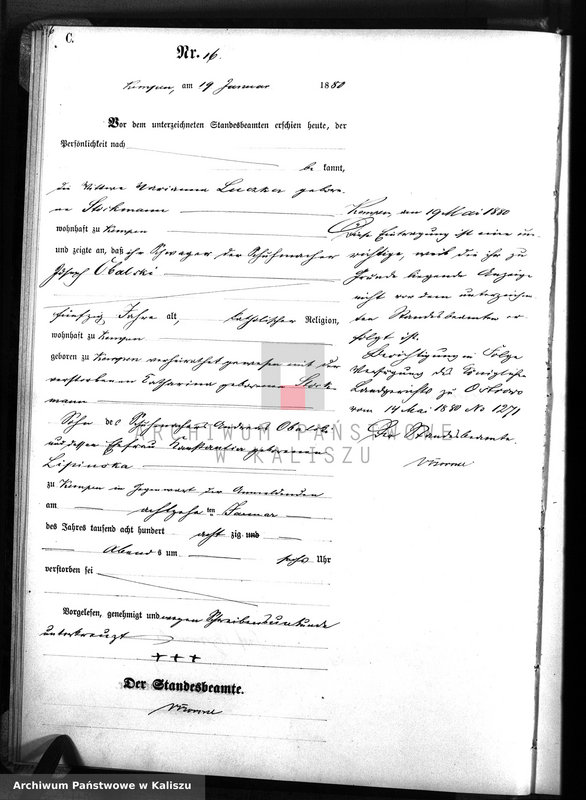 C.
Nr. 16.
Kempen, am 19 Januar 1880
Vor dem unterzeichneten Standesbeamten erschien heute, der
Persönlichkeit nach
be kannt,
die Wittwe Marianna Luczka gebore-
ne Stockmann
wohnhaft zu Kempen
und zeigte an, daß ihr Schwager der Schuhmacher
Joseph Obalski
fünfzig Jahre alt, katholischer Religion,
wohnhaft zu Kempen
geboren zu Kempen verheirathet gewesen mit der
verstorbenen Katharina geborenen Stock-
mann
Sohn des Schuhmachers Andreas Obalski
und dessen Ehefrau Konstantia geborenen
Lipinska
zu Kempen in Gegenwart der Anmeldenden
am achtzehn ten Januar
des Jahres tausend acht hundert acht zig und
Abends um sechs Uhr
verstorben sei
Vorgelesen, genehmigt und wegen Schreibensunkunde
unterkreuzt
+++
Der Standesbeamte.
Kempen, am 19 Mai 1880
Diese Eintragung ist eine un-
richtige, weil die ihr zu
Grunde liegende Anzeige
nicht vor dem unterzeichne-
ten Standesbeamten er-
folgt ist.
Berichtigung in Folge
Verfügung des Königlichen
Landgerichts zu Ostrowo
vom 14 Mai 1880 No 1271
Der Standesbeamte.
ARCHIWUM PAŃSTWOWE
W KALISZU
Archiwum Państwowe w Kaliszu